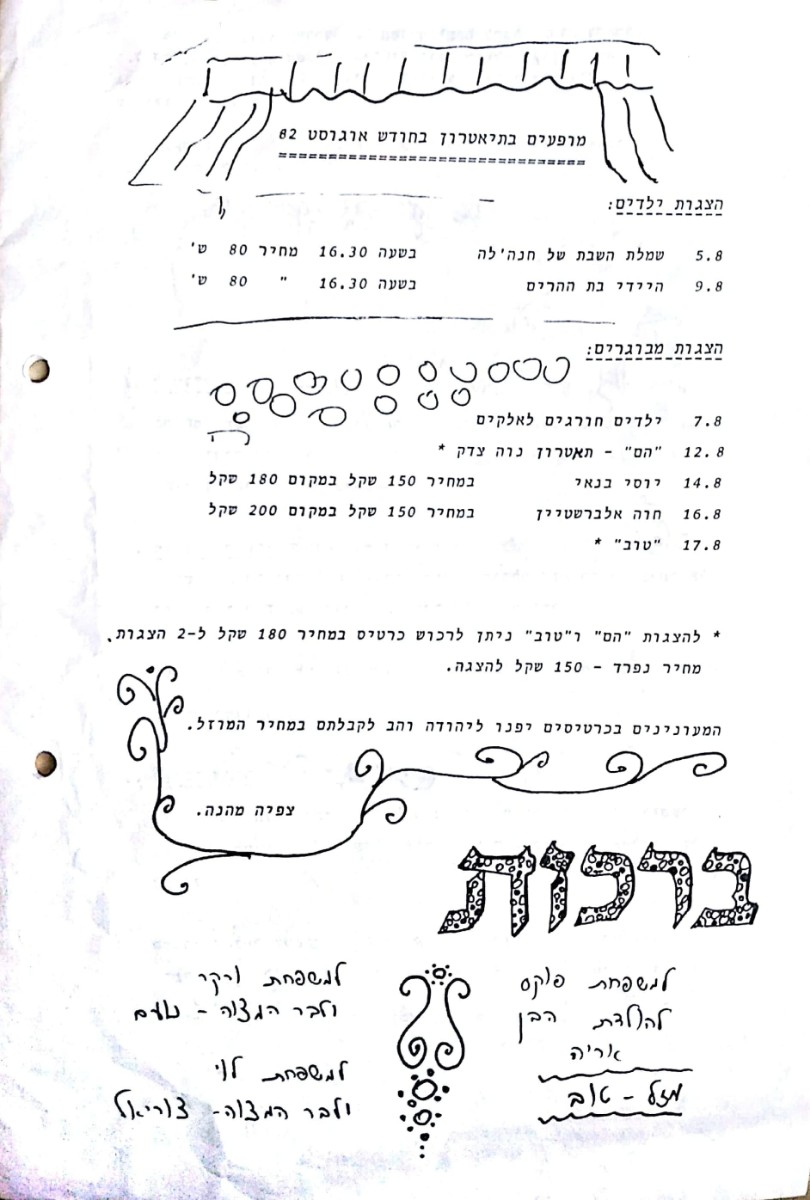 מופעים בתיאטרון בחודש אוגוסט 82
הצגות ילדים:
5.8 שמלת השבת של חנה'לה בשעה 16.30 מחיר 80 ש'
9.8 היידי בת ההרים בשעה 16.30 " 80 ש'
הצגות מבוגרים:
7.8 ילדים חורגים לאלקים
12.8 "הם" - תאטרון נוה צדק *
14.8 יוסי בנאי במחיר 150 שקל במקום 180 שקל
16.8 חוה אלברשטיין במחיר 150 שקל במקום 200 שקל
17.8 "טוב" *
* להצגות "הם" ו"טוב" ניתן לרכוש כרטיס במחיר 180 שקל ל-2 הצגות.
מחיר נפרד - 150 שקל להצגה.
המעונינים בכרטיסים יפנו ליהודה והב לקבלתם במחיר המוזל.
צפיה מהנה.
ברכות
למשפחת פוקס
להולדת הבן
אריה
מזל - טוב
למשפחת ורקר
ולבר המצוה - נועם
למשפחת לוי
ולבר המצוה - צוריאל